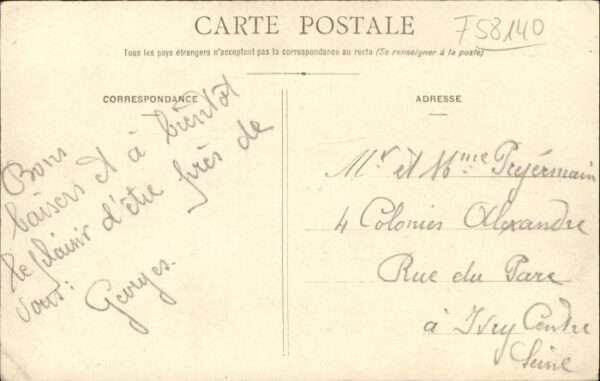 CARTE POSTALE
F58140
Tous les pays étrangers n'acceptent pas la correspondance au recto (Se renseigner à la poste)
CORRESPONDANCE
Bons
baisers et à bientôt
le plaisir d'être près de
vous.
Georges.
ADRESSE
Mr et Mme Peyérmain
4 Colonies Alexandre
Rue du Parc
à Ivry Centre
Seine